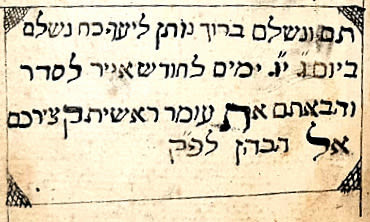 תם ונשלם ברוך נותן ליעף כח נשלם
ביום ג׳ י״ג ימים לחודש אייר לסדר
והבאתם את עומר ראשית קצירכם
אל הכהן לפ״ק